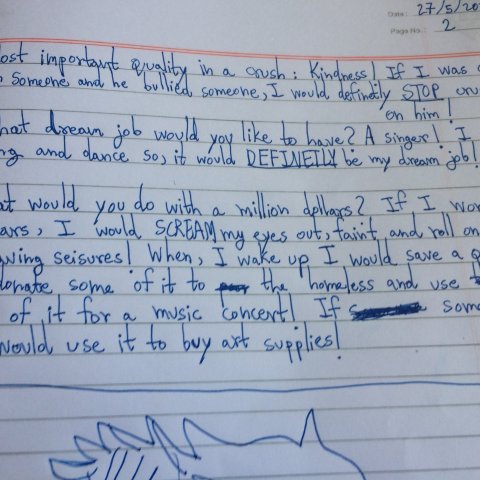 Date: 27/5/20
Page No.: 2
ost important quality in a crush: Kindness! If I was
someone and he bullied someone, I would definetly STOP cru
on him!
hat dream job would you like to have? A singer! I
ng and dance so, it would DEFINETLY be my dream job!
at would you do with a million dollars? If I won
ars, I would SCREAM my eyes out, faint and roll on
ving seisures! When, I wake up I would save a
donate some of it to the homeless and use
of it for a music concert! If som
would use it to buy art supplies!